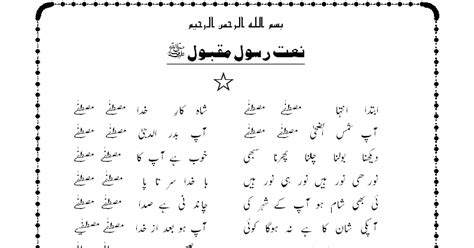 بسم الله الرحمن الرحيم
نعت رسول مقبول ﷺ
ابتدا انتہا مصطفےٰ مصطفےٰ شاہ کارِ خدا مصطفےٰ مصطفےٰ
آپ شمس الضحیٰ مصطفےٰ مصطفےٰ آپ بدر الدجیٰ مصطفےٰ مصطفےٰ
دیکھنا بولنا چلنا پھرنا سبھی خوب ہے آپ کا مصطفےٰ مصطفےٰ
نور ہی نور ہیں نور ہی نور ہیں با خدا سر تا پا مصطفےٰ مصطفےٰ
ئی بھی شام ہو آپ کے شہر کی چاندنی ہے صدا مصطفےٰ مصطفےٰ
آپکی شان کا ہے نہ ہوگا کوئی آپ ہو بعد از خدا مصطفےٰ مصطفےٰ